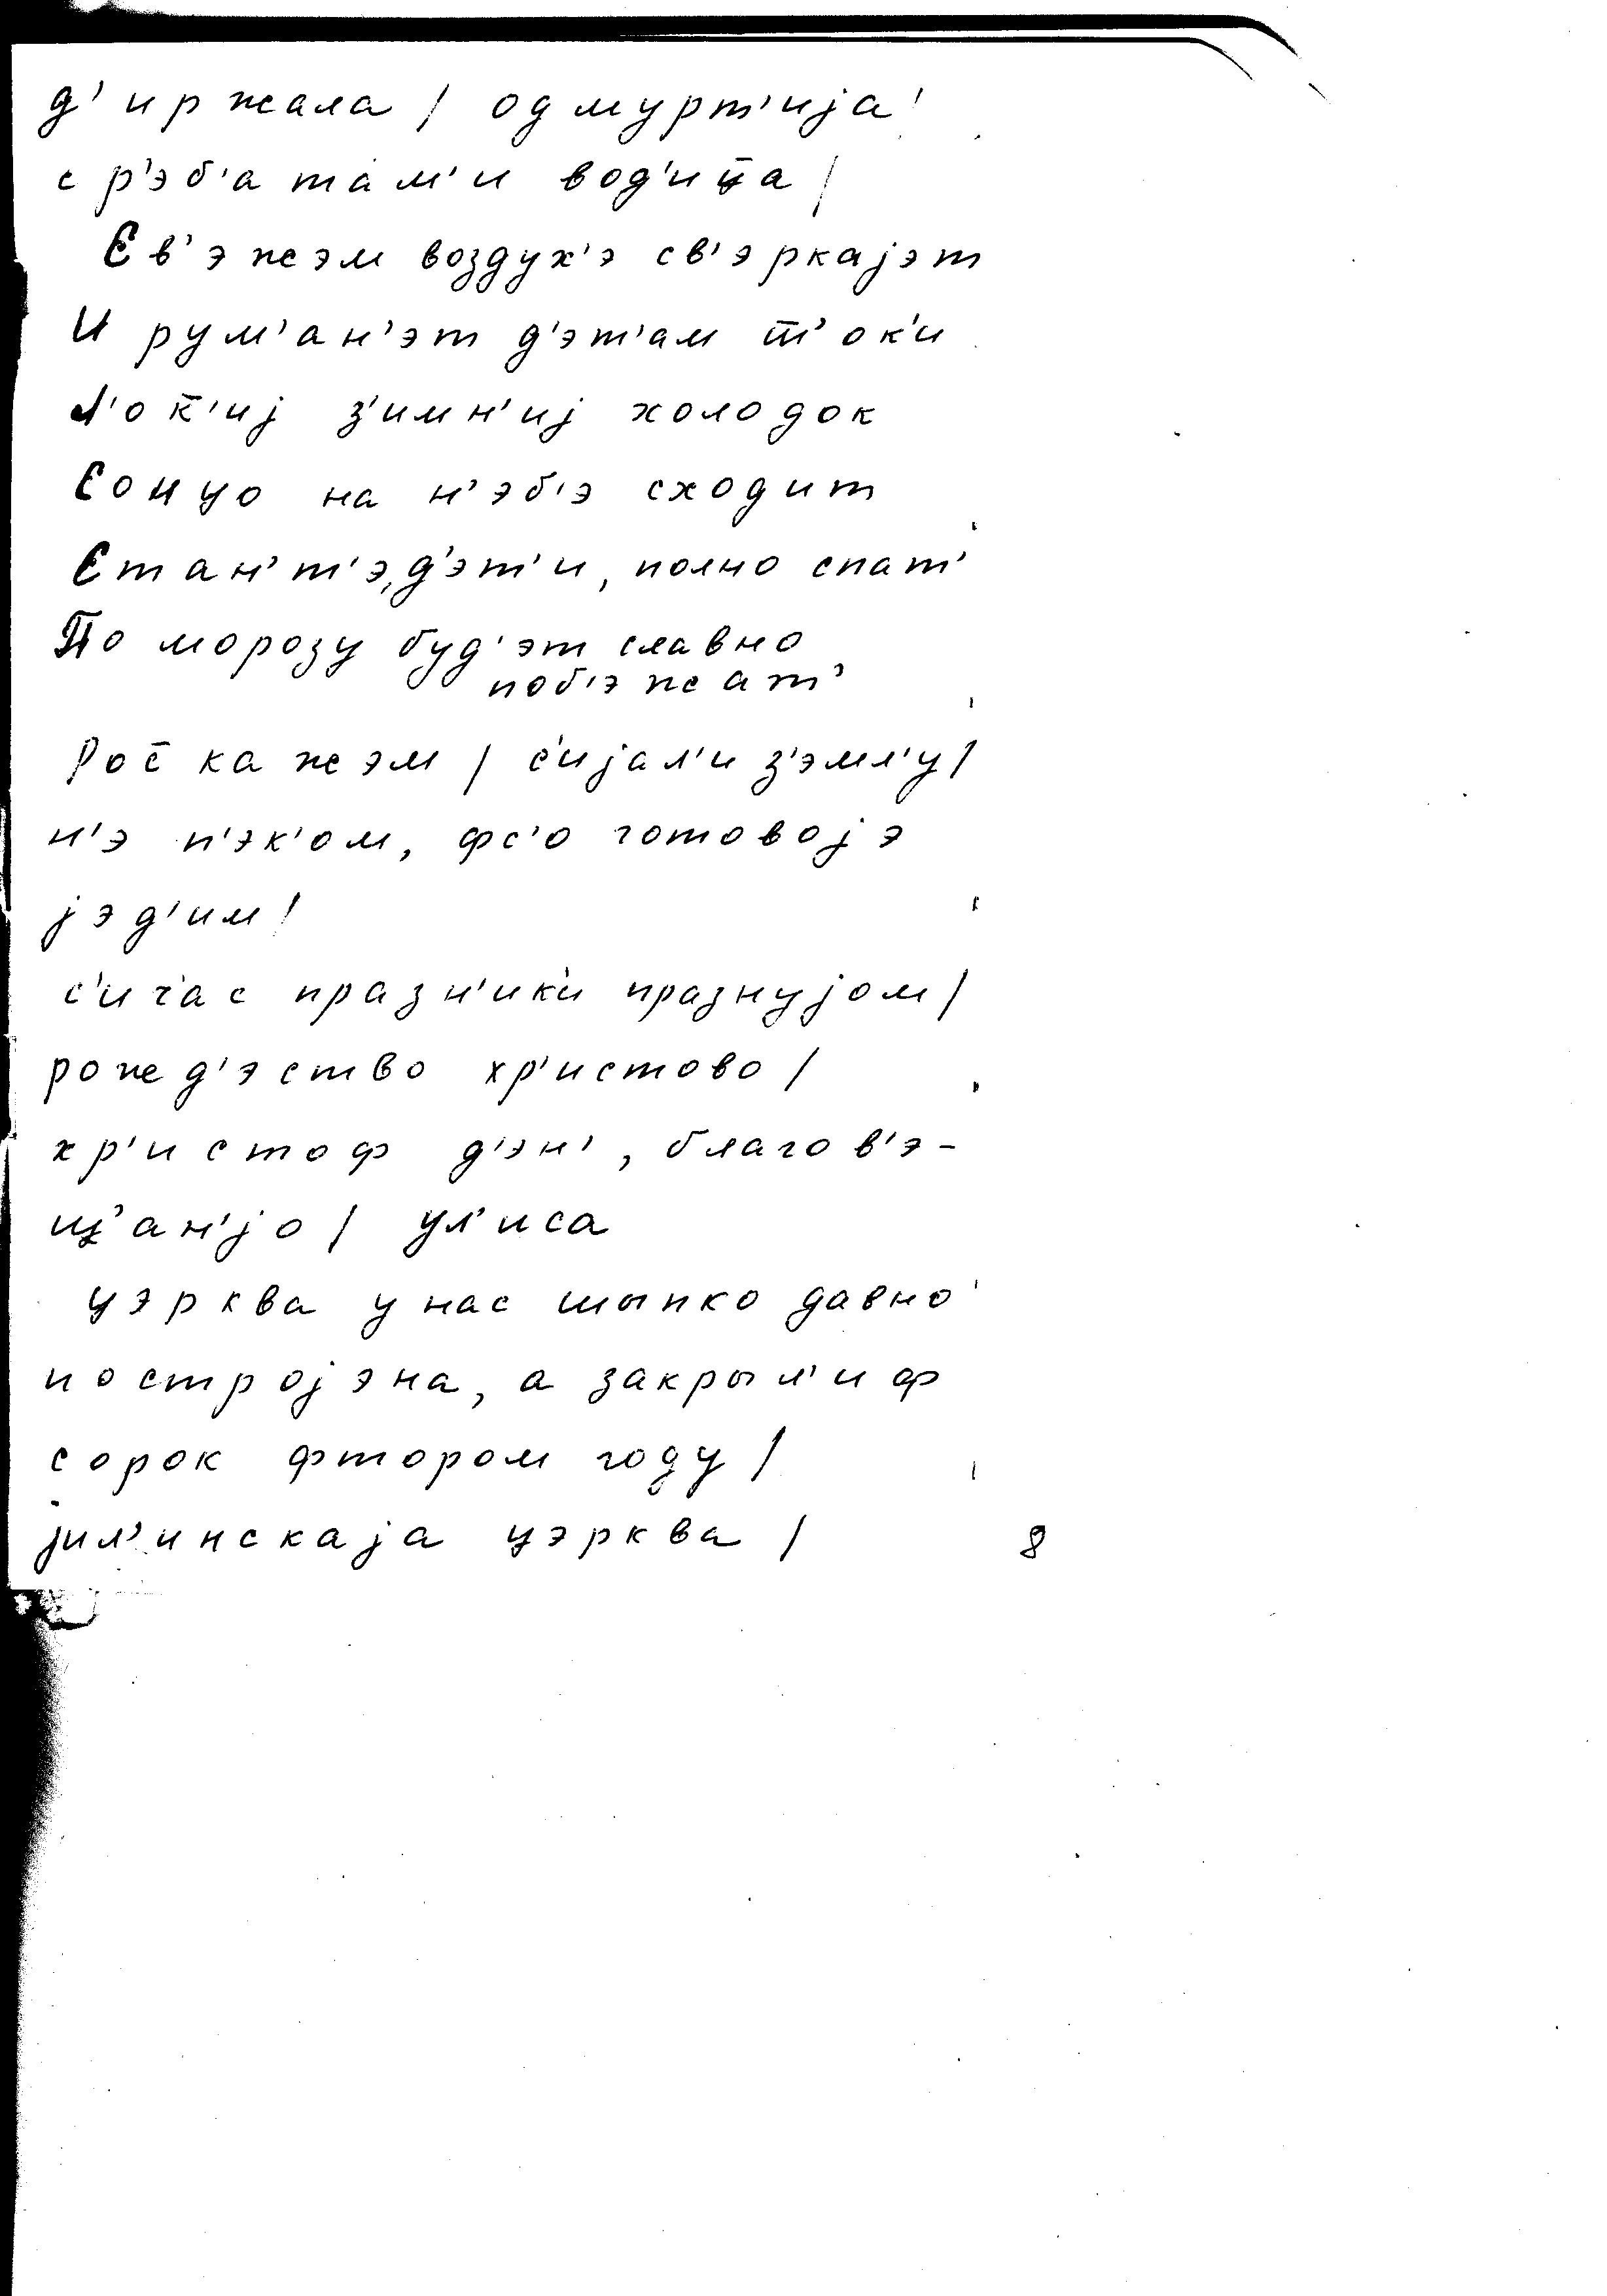 д'иржала / одмурт'ија
с р'эб'атам'и вод'иц̄а /
Св'эжэм воздух'э св'эркајэт
И рум'ан'эт д'эт'ам т̄'ок'и
Л'ок̄'иј з'имн'иј холодок
Сонцо на н'эб'э сходит
Стан'т'э, д'эт'и, полно спат'
По морозу буд'эт славно
поб'эжат'
Рос̄кажэм / с'ијал'и з'эмл'у /
н'э п'эк'ом, фс'о готовојэ
јэд'им /
с'ич'ас празн'ик'и празнујом /
рожд'эство хр'истово /
хр'истоф д'эн', благов'э-
щ'ан'јо / ул'иса
цэрква у нас шыпко давно
постројэна, а закрыл'и ф
сорок фтором году /
јил'инскаја цэрква /
8